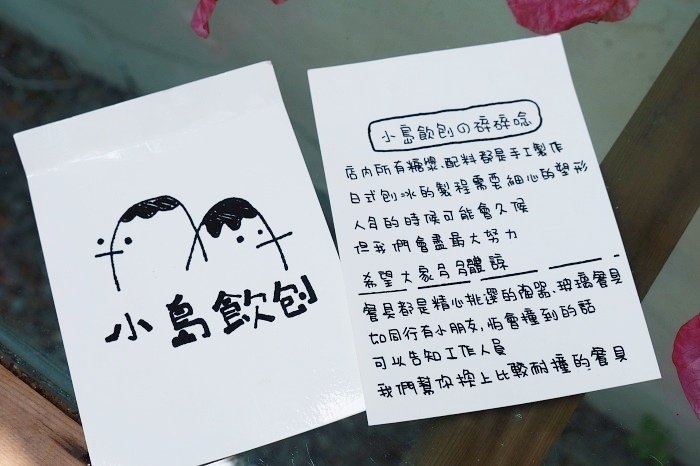 小島飲刨
小島飲刨の碎碎唸
店內所有糖漿、配料都是手工製作
日式刨冰的製程需要細心的塑形
人多的時候可能會久候
但我們會盡最大努力
希望大家多多體諒
餐具都是精心挑選的陶器、玻璃餐具
如同行有小朋友,怕會撞到的話
可以告知工作人員
我們幫你換上比較耐撞的餐具